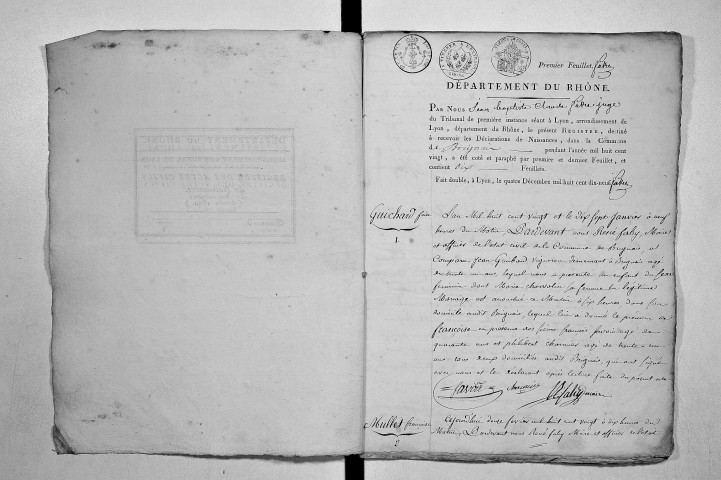 Premier Feuillet. fabre
DÉPARTEMENT DU RHÔNE.
PAR NOUS Jean baptiste Claude fabre juge
du Tribunal de première instance séant à Lyon, arrondissement de
Lyon, département du Rhône, le présent REGISTRE, destiné
à recevoir les Déclarations de Naissances, dans la Commune
d e Brignais pendant l'année mil huit cent
vingt, a été coté et paraphé par premier et dernier Feuillet, et
contient dix Feuillets.
Fait double, à Lyon, le quatre Décembre mil huit cent dix-neuf. fabre
Guichard
1.
L'an Mil huit cent vingt et le dix sept Janvier à neuf
heures du Matin Pardevant nous René faly, Maire
et officier de l'état civil de la Commune de Brignais, est
Comparu Jean Guichard vigneron demeurant à Brignais agé
de trente un ans, lequel nous a présenté un enfant du sexe
feminin dont Marie sa femme en légitime
Mariage est accouchée ce Matin à six heures dans son
domicile audit Brignais, lequel lui a donné le prénom de
françoise en présence des sieurs françois agé de
quarante ans et philibert charmier agé de trente
ans tous deux domiciliés audit Brignais, qui ont signé
avec nous et le déclarant après lecture faite du présent acte
faly maire
Mullet françoise
2
Aujourd'hui douze février mil huit cent vingt à dix heures du
Matin, Pardevant nous René faly Maire et officier de l'état